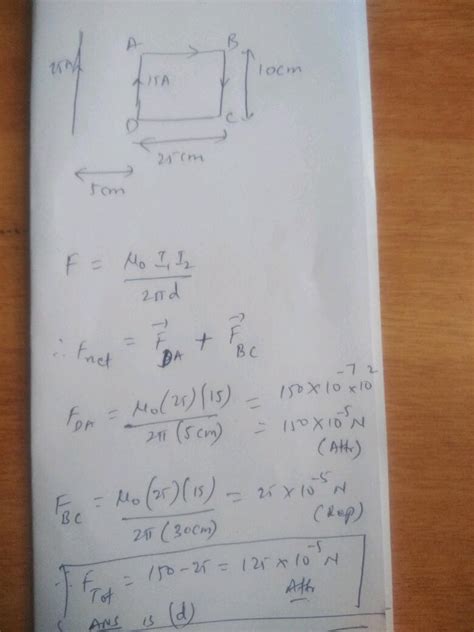 A B
25A 15A 10cm
D C
25cm
5cm
F = μ₀ I₁ I₂ / 2πd
∴ Fnet = F⃗DA + F⃗BC
FDA = μ₀(25)(15) / 2π(5cm) = 150×10⁻⁷×10²
= 150×10⁻⁵ N
(Attr)
FBC = μ₀(25)(15) / 2π(30cm) = 25×10⁻⁵ N
(Rep)
∴ FTot = 150-25 = 125×10⁻⁵ N
Attr
ANS is (d)